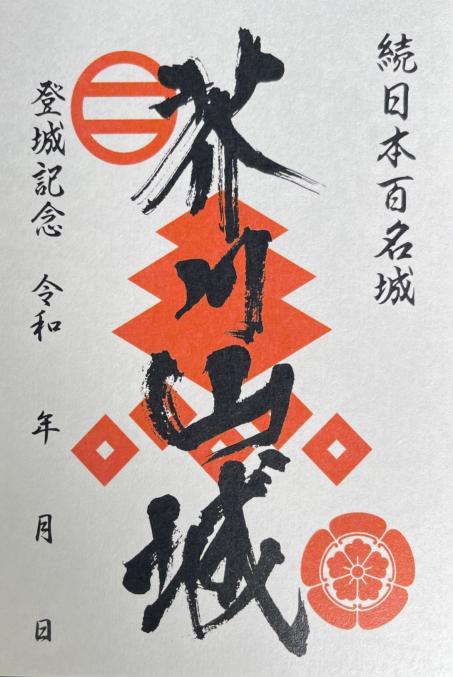 続日本百名城
芥川山城
登城記念 令和 年 月 日